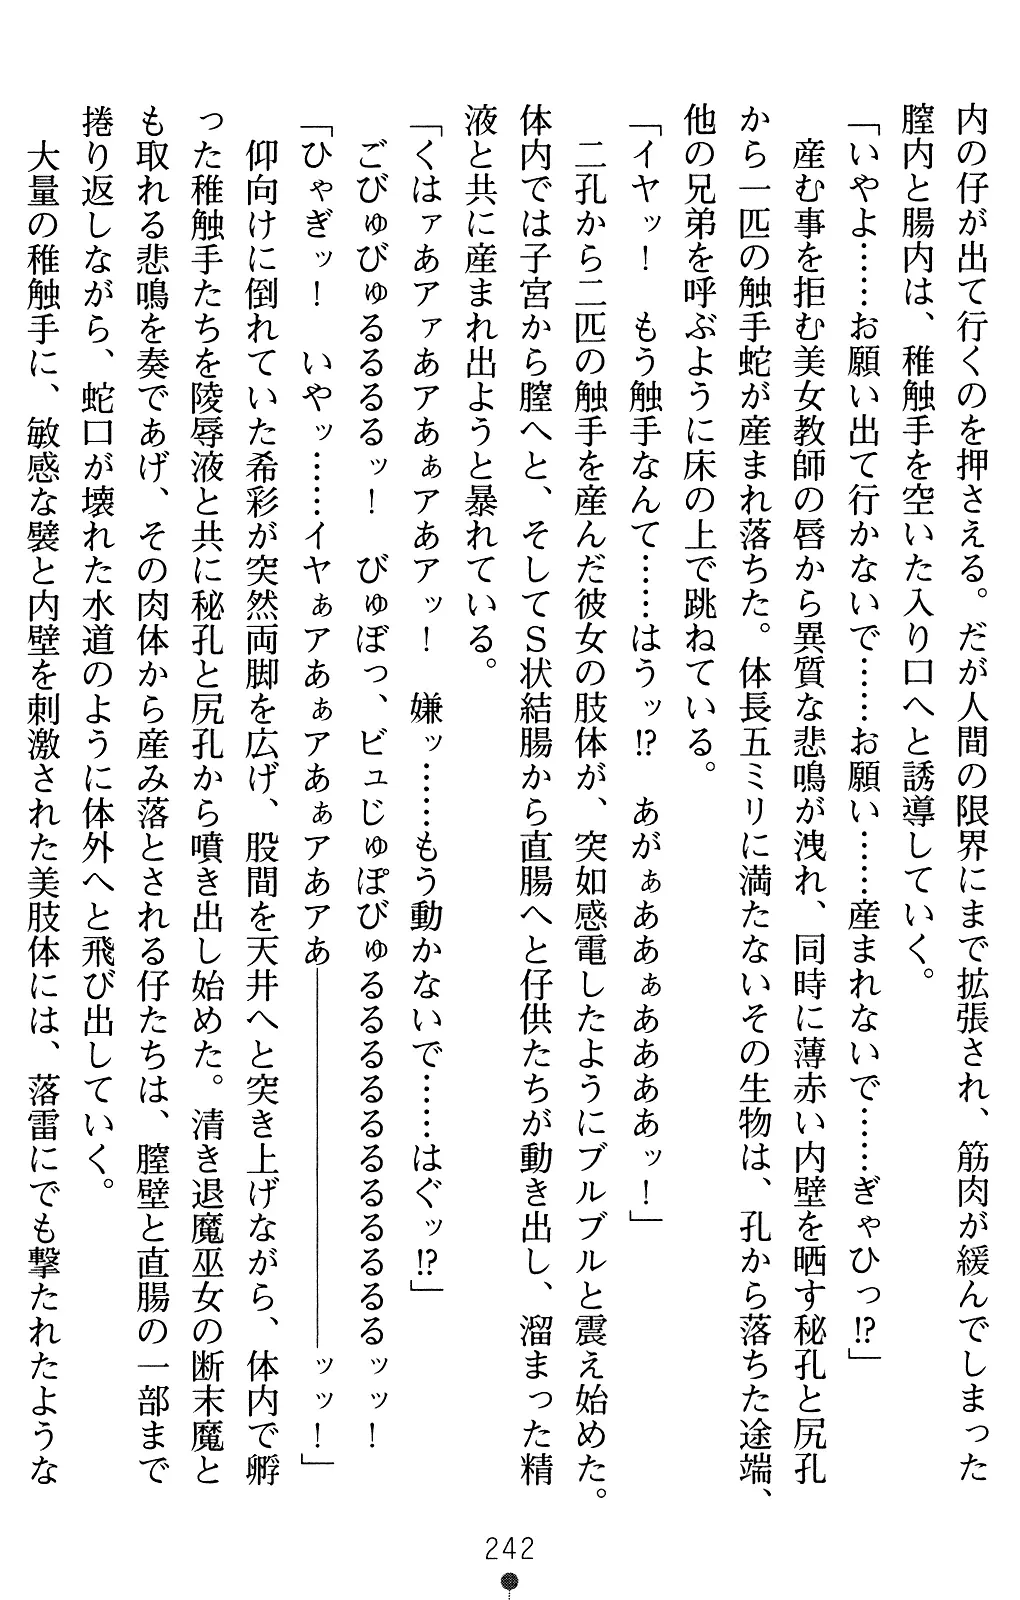 内の仔が出て行くのを押さえる。だが人間の限界にまで拡張され、筋肉が緩んでしまった
膣内と腸内は、稚触手を空いた入り口へと誘導していく。
「いやよ……お願い出て行かないで……お願い……産まれないで……ぎゃひっ!?」
産む事を拒む美女教師の唇から異質な悲鳴が洩れ、同時に薄赤い内壁を晒す秘孔と尻孔
から一匹の触手蛇が産まれ落ちた。体長五ミリに満たないその生物は、孔から落ちた途端、
他の兄弟を呼ぶように床の上で跳ねている。
「イヤッ！　もう触手なんて……はうッ!?　あがぁああぁああああッ！」
二孔から二匹の触手を産んだ彼女の肢体が、突如感電したようにブルブルと震え始めた。
体内では子宮から膣へと、そしてＳ状結腸から直腸へと仔供たちが動き出し、溜まった精
液と共に産まれ出ようと暴れている。
「くはァあアァあアあぁアあアッ！　嫌ッ……もう動かないで……はぐッ!?」
ごびゅびゅるるるッ！　びゅぼっ、ビュじゅぽびゅるるるるるるるるッッ！
「ひゃぎッ！　いやッ……イヤぁアあぁアあぁアあアあ――――――――ッッ！」
仰向けに倒れていた希彩が突然両脚を広げ、股間を天井へと突き上げながら、体内で孵
った稚触手たちを陵辱液と共に秘孔と尻孔から噴き出し始めた。清き退魔巫女の断末魔と
も取れる悲鳴を奏であげ、その肉体から産み落とされる仔たちは、膣壁と直腸の一部まで
捲り返しながら、蛇口が壊れた水道のように体外へと飛び出していく。
大量の稚触手に、敏感な襞と内壁を刺激された美肢体には、落雷にでも撃たれたような
242